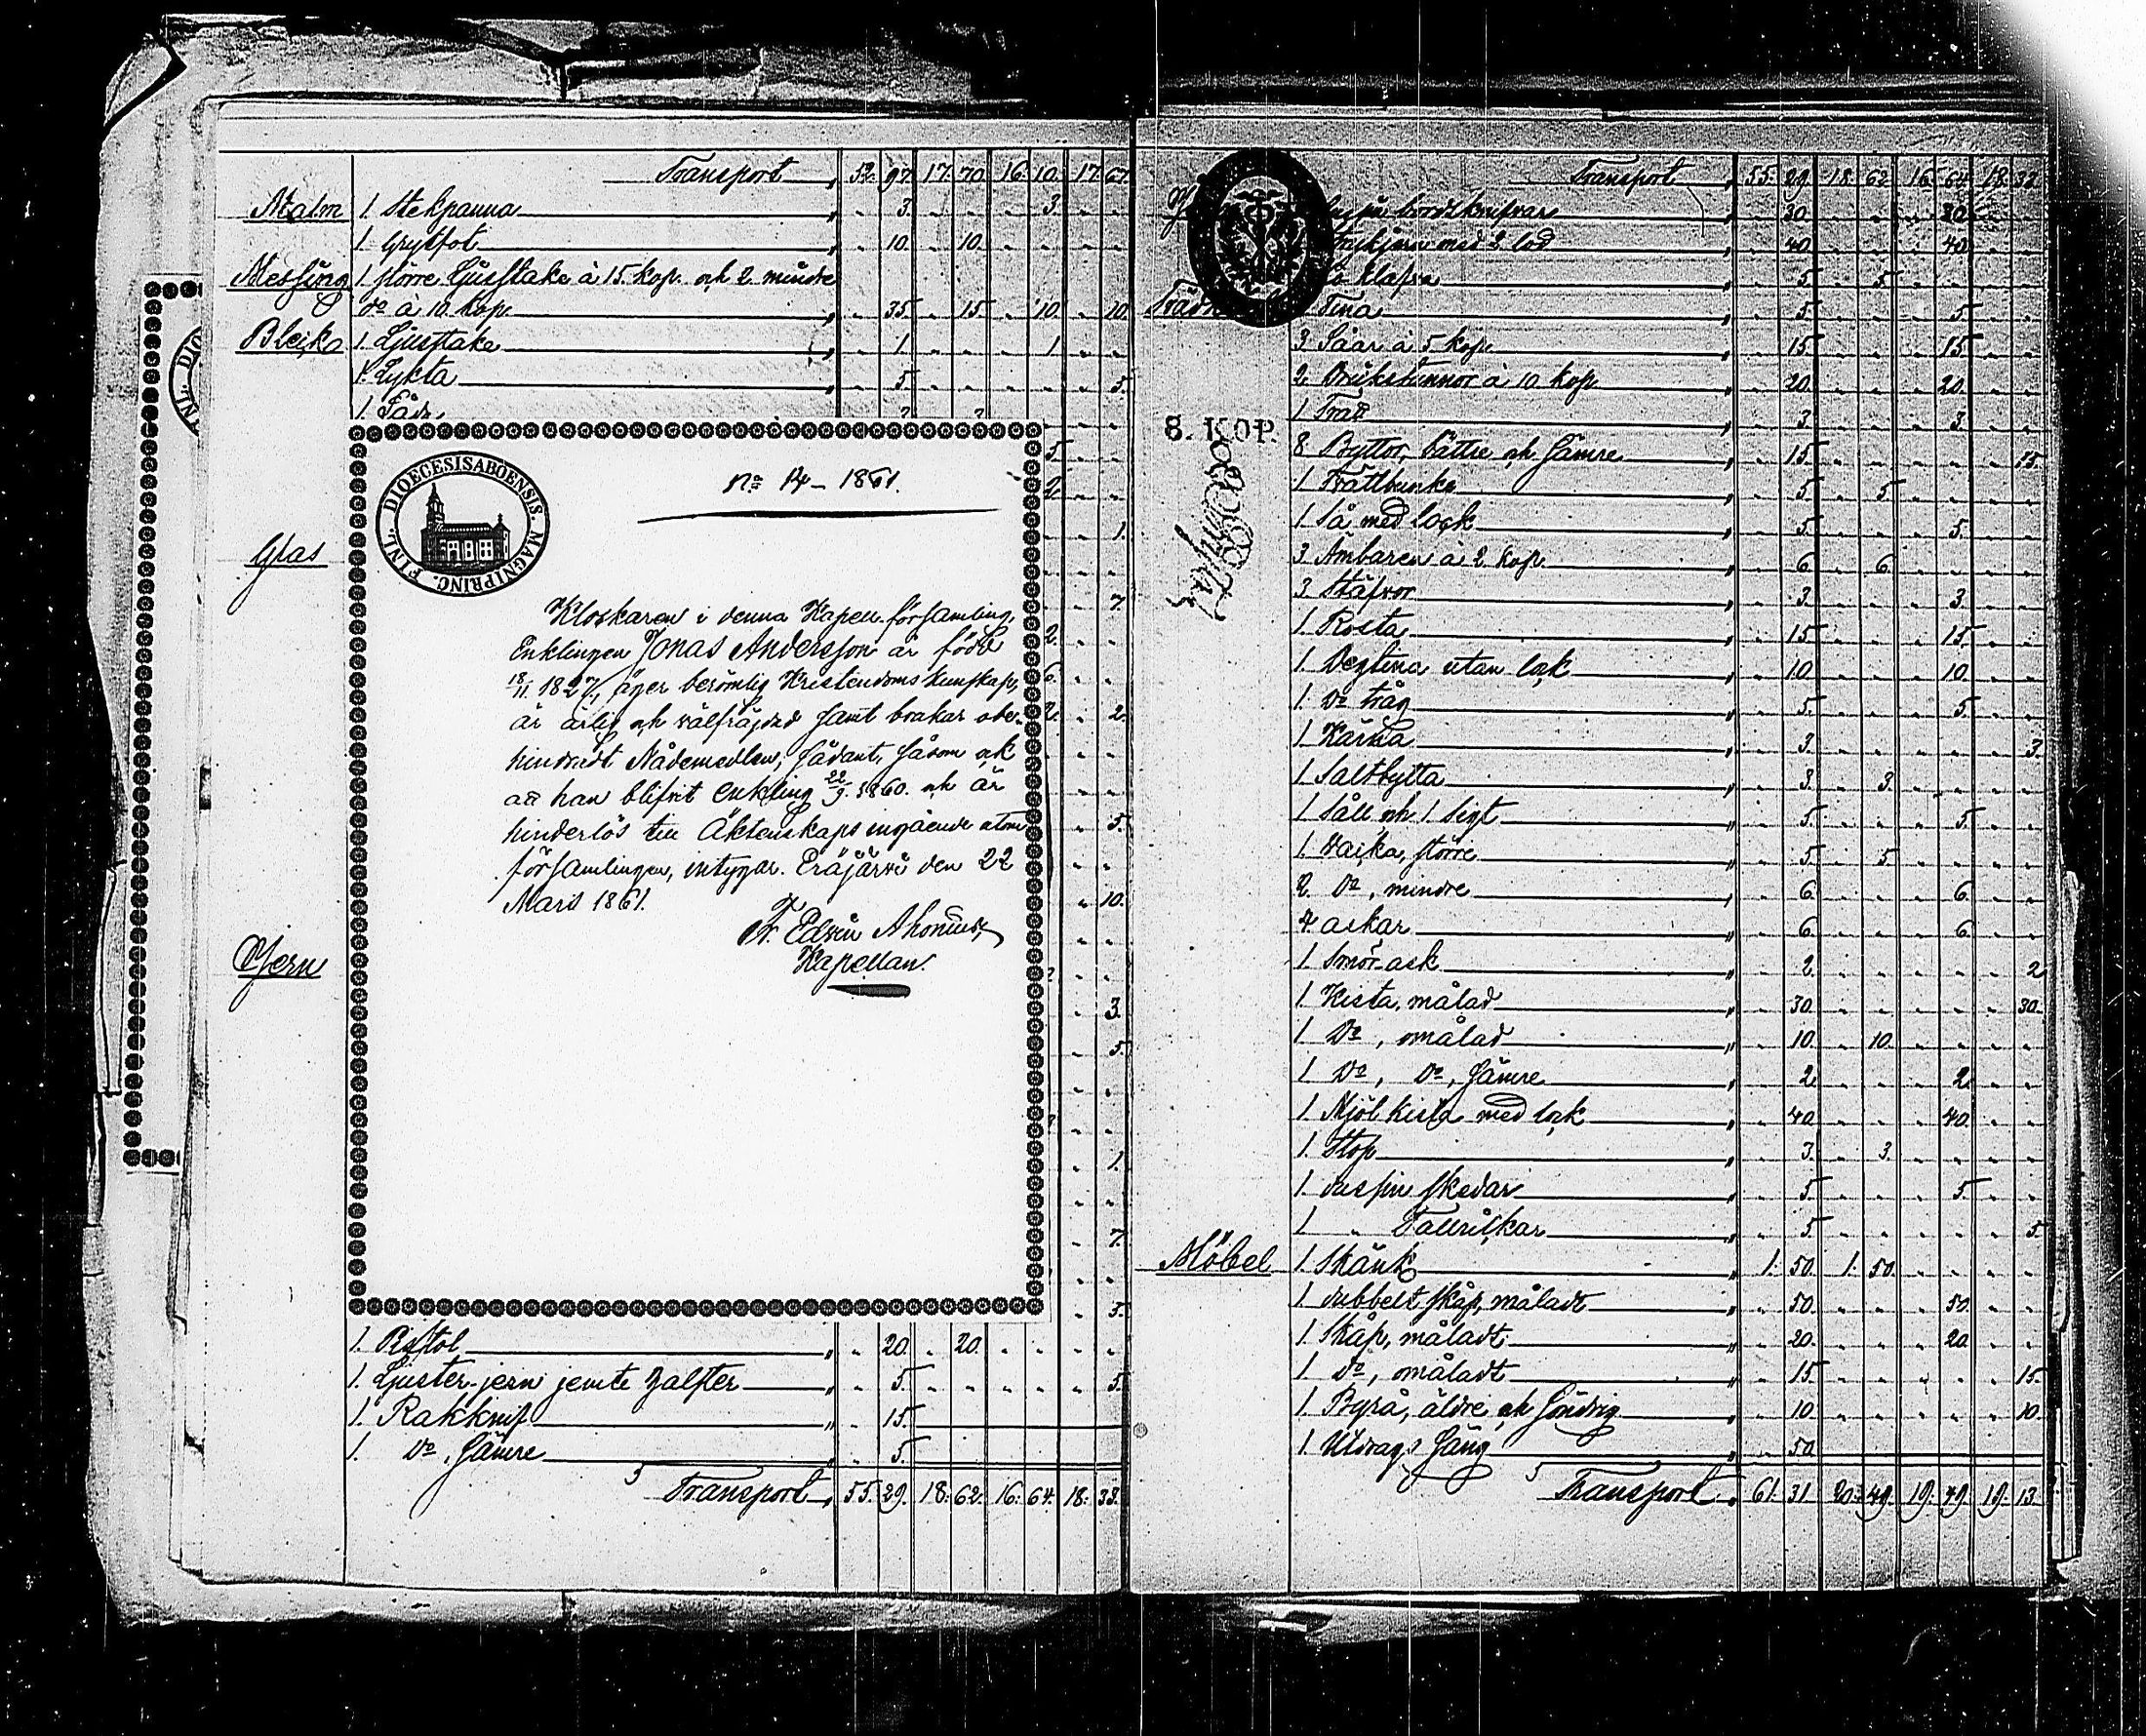 Transport „ 52. 97. 17. 70. 16. 10. 17. 67.
Malm 1. Stekpanna „ „ 3. „ „ „ 3. „ „
1. Grytfot „ „ 10. „ 10. „ „ „ „
Messing 1. större Ljusstake à 15. kop. och 2. mindre
do à 10. kop. „ „ 35. „ 15. „ 10. „ 10.
Bleck 1. Ljusstake „ „ 1. „ „ „ 1. „ „
1. Lykta „ „ 5. „ „ „ „ „ 5.
1. Såds
Glas
Jern
FINL. DIOECESIS ABOENSIS. MAGNI PRINC.
1861.
Klockaren i denna Kapell-församling,
Enklingen Jonas Andersson är född
18/11 1827, äger berömlig Kristendoms kunskap,
är ärlig och välfräjdad samt brukar obe-
hindradt Nådemedlen, sådant, såsom ock
att han blifvit enkling 22/9. 1860. och är
hinderlös till Äktenskaps ingående utom
församlingen, intygar. Eräjärvi den 22
Mars 1861.
Fr. Edvin Ahonius,
Kapellan.
1. Pistol „ „ 20. „ 20. „ „ „ „
1. Ljuster-jern jemte halster „ „ 5. „ „ „ „ „ 5.
1. Rakknif „ „ 15.
1. do, sämre „ „ 5.
Transport „ 55. 29. 18. 62. 16. 64. 18. 33.
Transport „ 55. 29. 18. 62. 16. 64. 18. 33.
bordsknifvar „ „ 30. „ „ „ 30. „ „
med 2 lod „ „ 40. „ „ „ 40. „ „
„ „ 5. „ 5. „ „ „ „
Tina „ „ 5. „ „ „ 5. „ „
3 Såar à 5 kop. „ „ 15. „ „ „ 15. „ „
2. Drickstunnor à 10 kop „ „ 20. „ „ „ 20. „ „
1 Tratt „ „ 3. „ „ „ 3. „ „
8. KOP.
8 Byttor, bättre och sämre „ „ 15. „ „ „ „ „ 15.
1 Tvättbunke „ „ 5. „ 5. „ „ „ „
1 Så med lock „ „ 5. „ „ „ 5. „ „
3 Ämbaren à 2 kop. „ „ 6. „ 6. „ „ „ „
3 Stäfvor „ „ 3. „ „ „ 3. „ „
1 Rosta „ „ 15. „ „ „ 15. „ „
1. Degtina utan lock „ „ 10. „ „ „ 10. „ „
1 do tråg „ „ 5. „ „ „ 5. „ „
1 Kärna „ „ 3. „ „ „ „ „ 3.
1 Saltbytta „ „ 3. „ 3. „ „ „ „
1 Såll och 1 Sigt „ „ 5. „ „ „ 5. „ „
1. Wacka, större „ „ 5. „ 5. „ „ „ „
2. do, mindre „ „ 6. „ „ „ 6. „ „
4 askar „ „ 6. „ „ „ 6. „ „
1 Smör-ask „ „ 2. „ „ „ „ „ 2
1 Kista, målad „ „ 30. „ „ „ „ „ 30.
1 do, omålad „ „ 10. „ 10. „ „ „ „
1 do, do, sämre „ „ 2. „ „ „ 2. „ „
1 Mjöl kista med lock „ „ 40. „ „ „ 40. „ „
1 Stop „ „ 3. „ 3. „ „ „ „
1. dussin skedar „ „ 5. „ „ „ 5. „ „
1 „ Tallrickar „ „ 5. „ „ „ „ „ 5.
Möbel 1. Skänk „ 1. 50. 1. 50. „ „ „ „
1. dubbelt skåp, måladt „ „ 50. „ „ „ 50. „ „
1 Skåp, måladt „ „ 20. „ „ „ 20. „ „
1 do, omåladt „ „ 15. „ „ „ „ „ 15.
1 Byrå, äldre och söndrig „ „ 10. „ „ „ „ „ 10.
1 Utdrags säng „ „ 50.
Transport „ 61. 31. 20. 49. 19. 49. 19. 13.